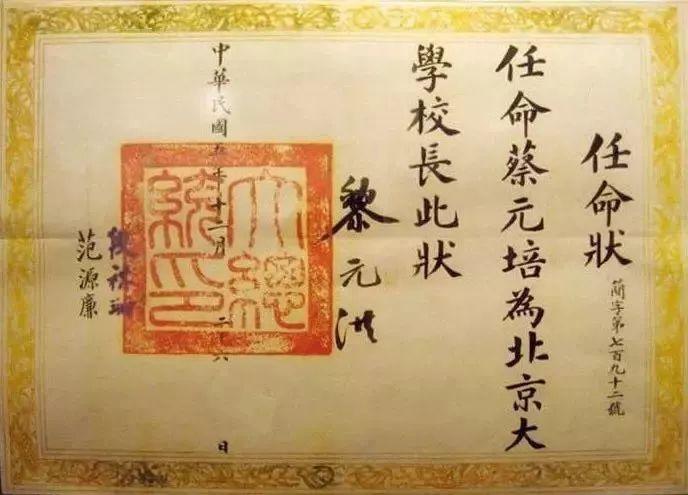 任命狀
簡字第七百九十二號
任命蔡元培為北京大
學校長此狀
黎元洪
大總
統印
中華民國五年十二月二十六日
段祺瑞
范源廉